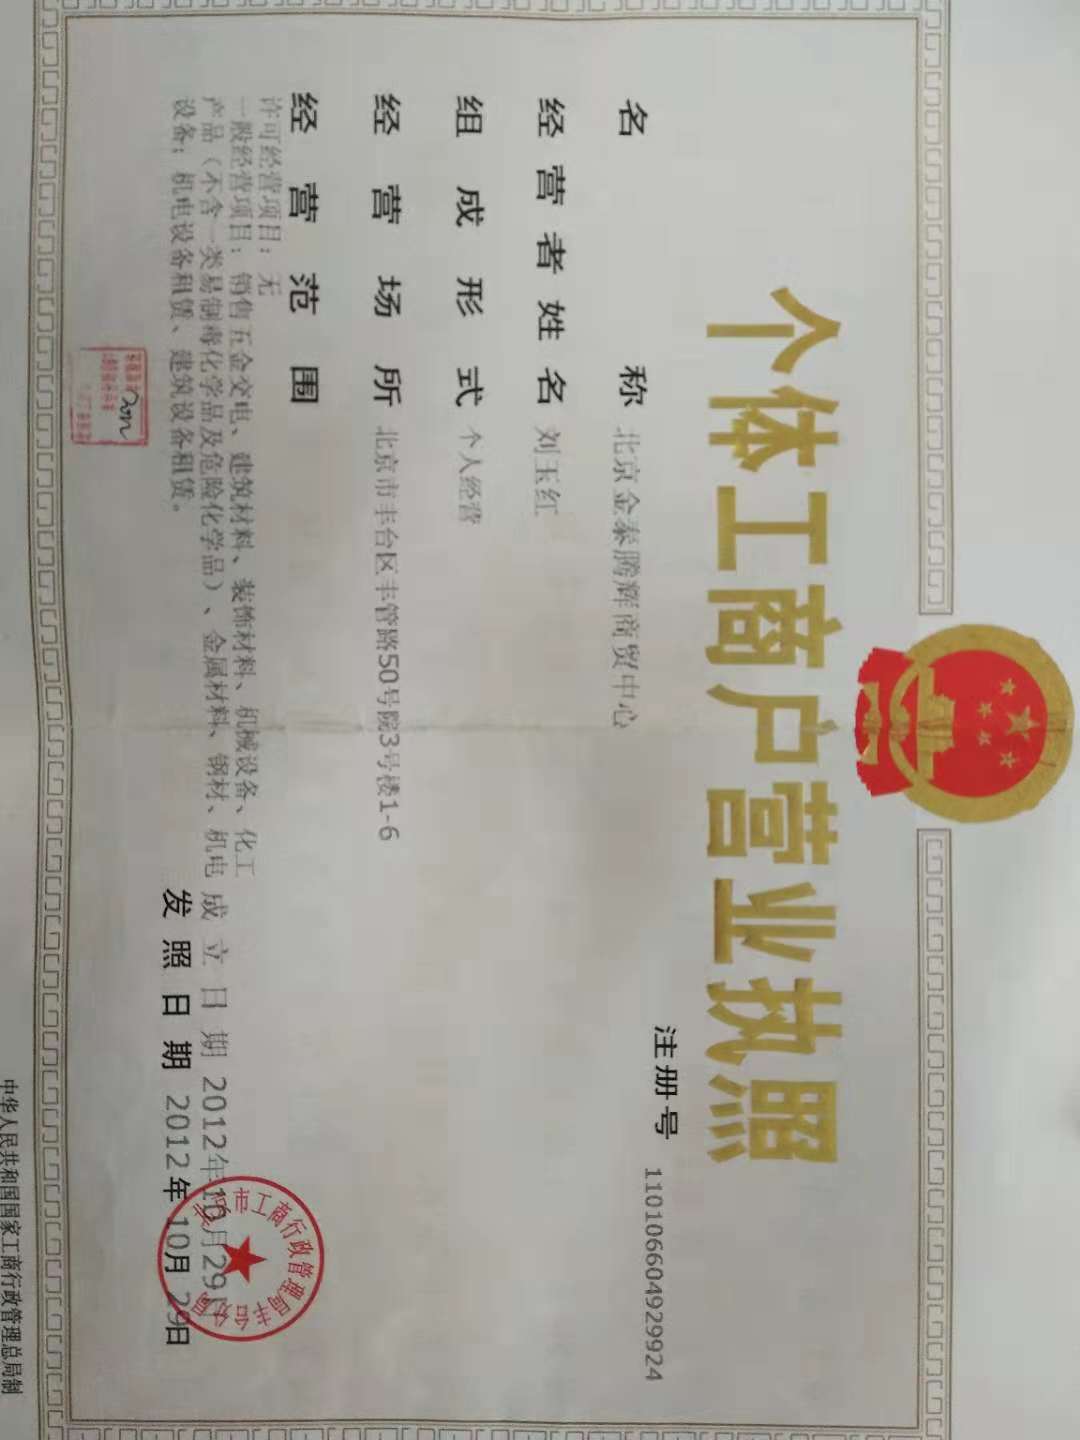 个体工商户营业执照
注册号 110106604929924
名称 北京金泰腾辉商贸中心
经营者姓名 刘玉红
组成形式 个人经营
经营场所 北京市丰台区丰管路50号院3号楼1-6
经营范围
许可经营项目：无
一般经营项目：销售五金交电、建筑材料、装饰材料、机械设备、化工
产品（不含一类易制毒化学品及危险化学品）、金属材料、钢材、机电
设备；机电设备租赁、建筑设备租赁。
成立日期 2012年10月29日
发照日期 2012年10月29日
北京市工商行政管理局丰台分局
中华人民共和国国家工商行政管理总局制